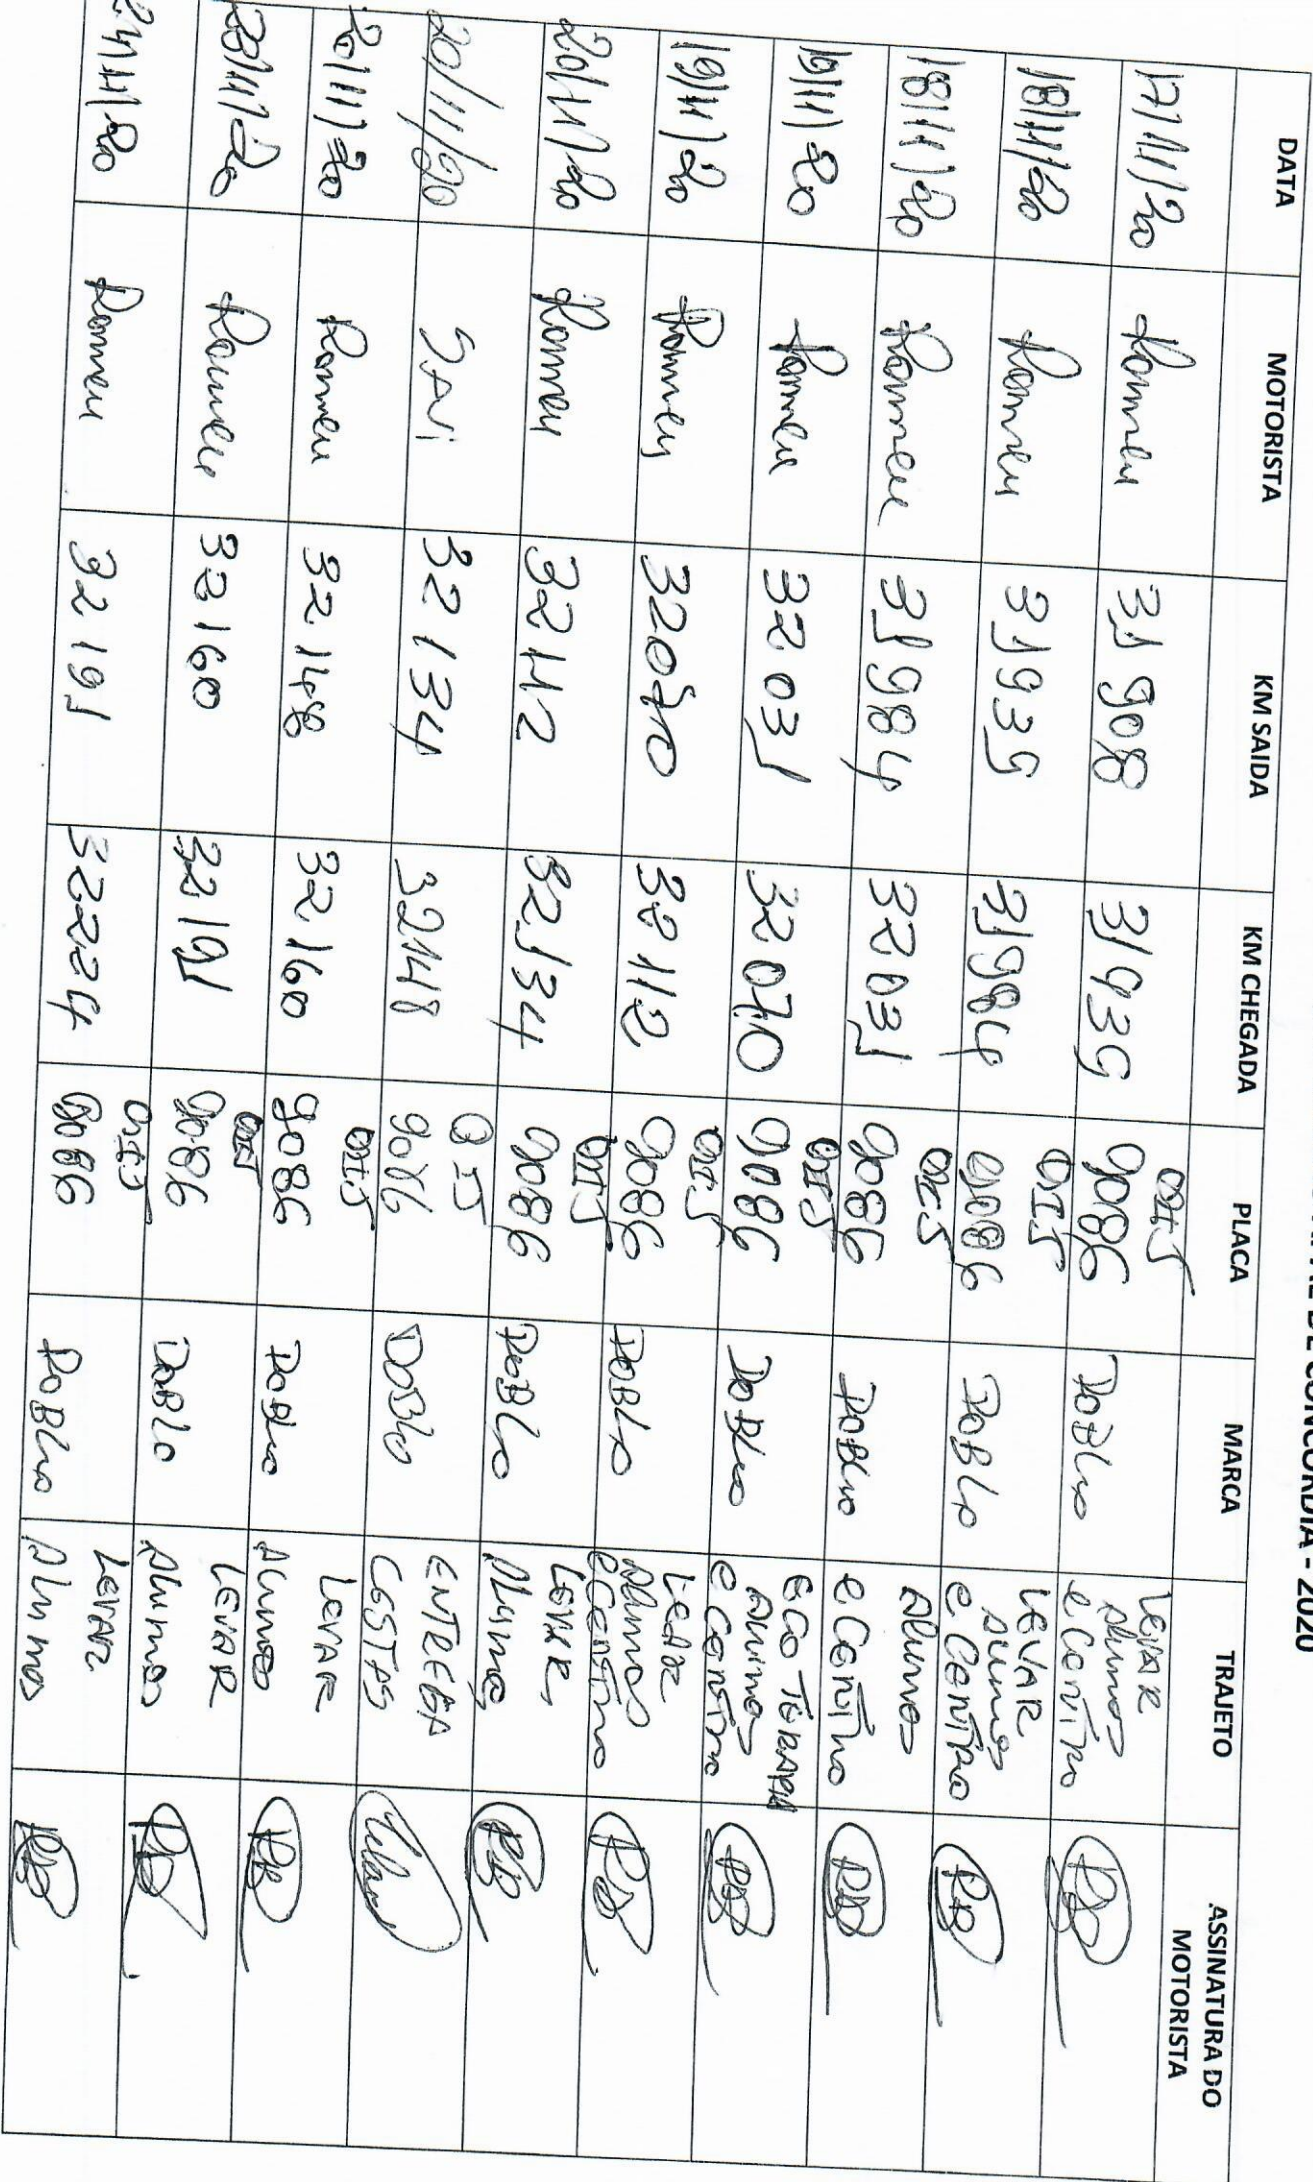 DE CONCORDIA - 2020
DATA MOTORISTA KM SAIDA KM CHEGADA PLACA MARCA TRAJETO ASSINATURA DO MOTORISTA
17/11/20 Rommeu 31908 31939 QIJ 9086 DOBLO LEVAR Alunos e Centro
18/11/20 Rommeu 31939 31984 QIJ 9086 DOBLO LEVAR Alunos e Centro
18/11/20 Rommeu 31984 32031 QIJ 9086 DOBLO Alunos e Centro
19/11/20 Rommeu 32031 32070 QIJ 9086 DOBLO ECO TERAPIA Alunos e Centro
19/11/20 Rommeu 32070 32112 QIJ 9086 DOBLO LEVAR Alunos e Centro
20/11/20 Rommeu 32112 32134 QIJ 9086 DOBLO LEVAR Alunos
20/11/20 32134 32148 QIJ 9086 DOBLO ENTREGA CESTAS
20/11/20 Rommeu 32148 32160 QIJ 9086 DOBLO LEVAR Alunos
23/11/20 Rommeu 32160 32191 QIJ 9086 DOBLO LEVAR Alunos
24/11/20 Rommeu 32191 32224 QIJ 9086 DOBLO LEVAR Alunos